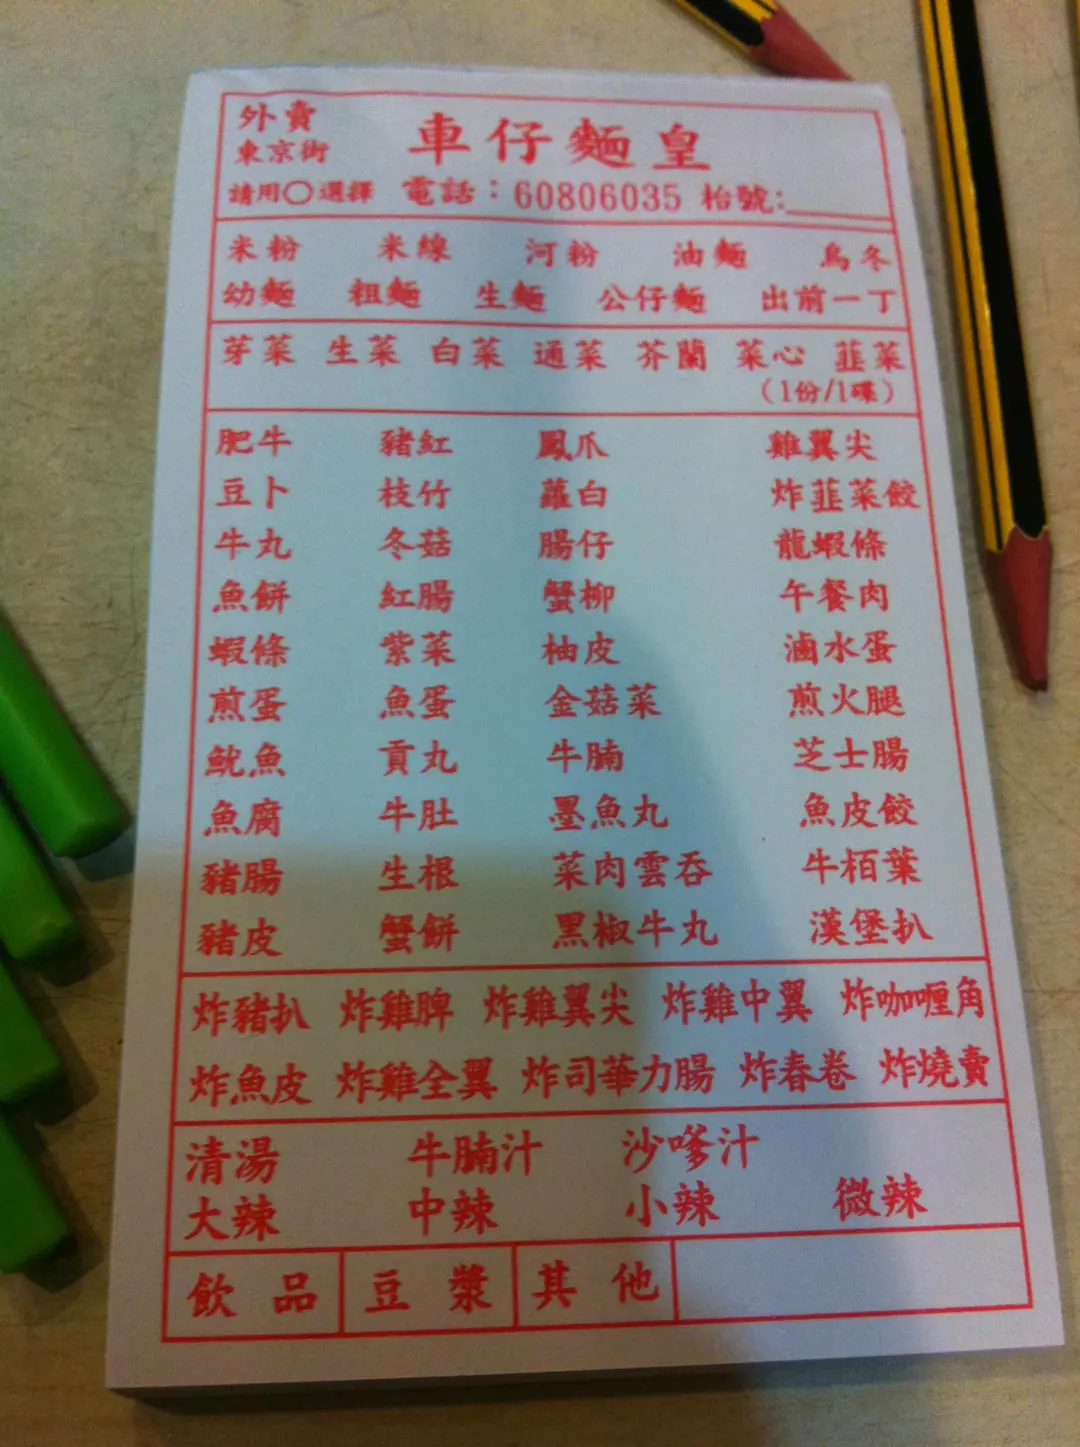 外賣
東京街
車仔麵皇
請用○選擇 電話：60806035 枱號:______
米粉 米線 河粉 油麵 烏冬
幼麵 粗麵 生麵 公仔麵 出前一丁
芽菜 生菜 白菜 通菜 芥蘭 菜心 韮菜
（1份/1碟）
肥牛 豬紅 鳳爪 雞翼尖
豆卜 枝竹 蘿白 炸韮菜餃
牛丸 冬菇 腸仔 龍蝦條
魚餅 紅腸 蟹柳 午餐肉
蝦條 紫菜 柚皮 滷水蛋
煎蛋 魚蛋 金菇菜 煎火腿
魷魚 貢丸 牛腩 芝士腸
魚腐 牛肚 墨魚丸 魚皮餃
豬腸 生根 菜肉雲吞 牛栢葉
豬皮 蟹餅 黑椒牛丸 漢堡扒
炸豬扒 炸雞脾 炸雞翼尖 炸雞中翼 炸咖喱角
炸魚皮 炸雞全翼 炸司華力腸 炸春卷 炸燒賣
清湯 牛腩汁 沙嗲汁
大辣 中辣 小辣 微辣
飲品 豆漿 其他